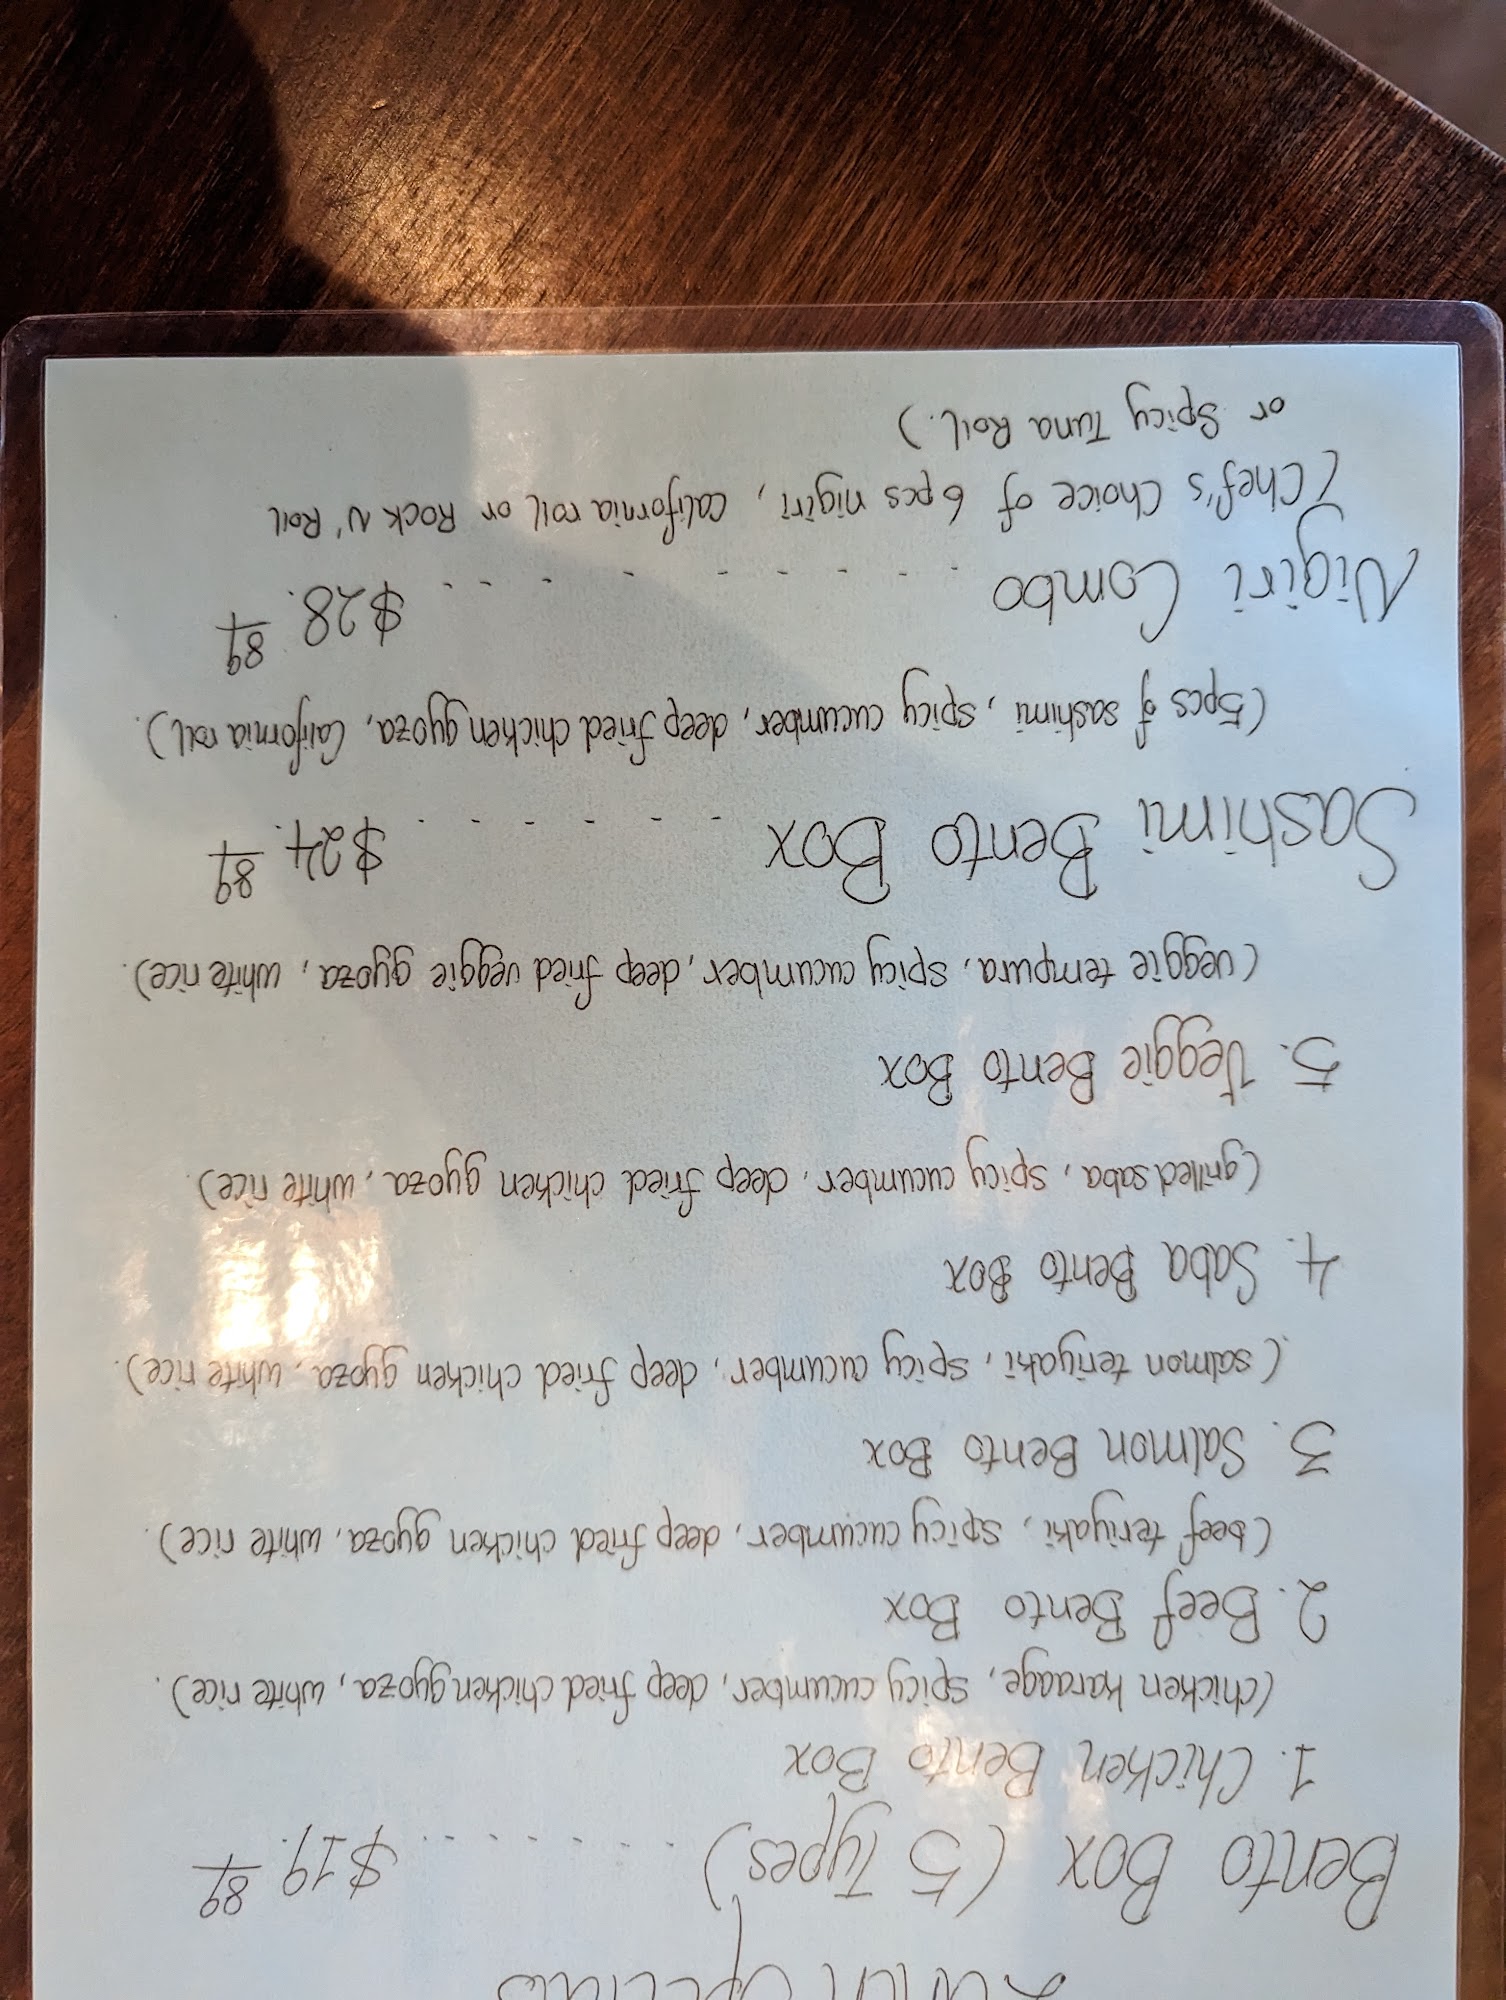 Lunch Specials
Bento Box (5 Types) ........ $19.89
1. Chicken Bento Box
(chicken karaage, spicy cucumber, deep fried chicken gyoza, white rice).
2. Beef Bento Box
(beef teriyaki, spicy cucumber, deep fried chicken gyoza, white rice).
3. Salmon Bento Box
(salmon teriyaki, spicy cucumber, deep fried chicken gyoza, white rice).
4. Saba Bento Box
(grilled saba, spicy cucumber, deep fried chicken gyoza, white rice).
5. Veggie Bento Box
(veggie tempura, spicy cucumber, deep fried veggie gyoza, white rice).
Sashimi Bento Box ...... $24.89
(5pcs of sashimi, spicy cucumber, deep fried chicken gyoza, California roll).
Nigiri Combo .......... $28.89
(Chef's Choice of 6pcs nigiri, California roll or Rock N' Roll
or Spicy Tuna Roll.)